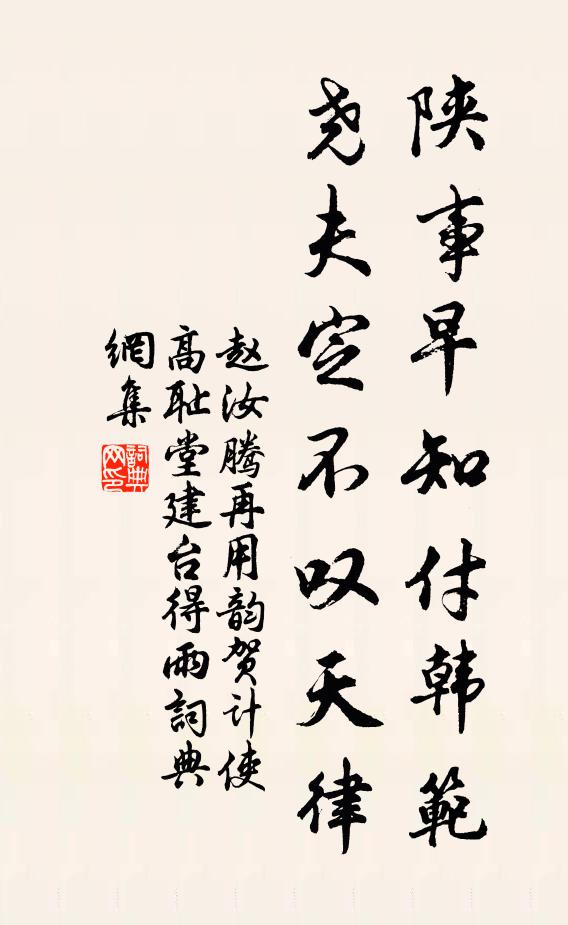 陕事早知付韩範
尧夫定不叹天律
赵汝腾再用韵贺计使
高耻堂建台得雨詞典
網集
詞典网印